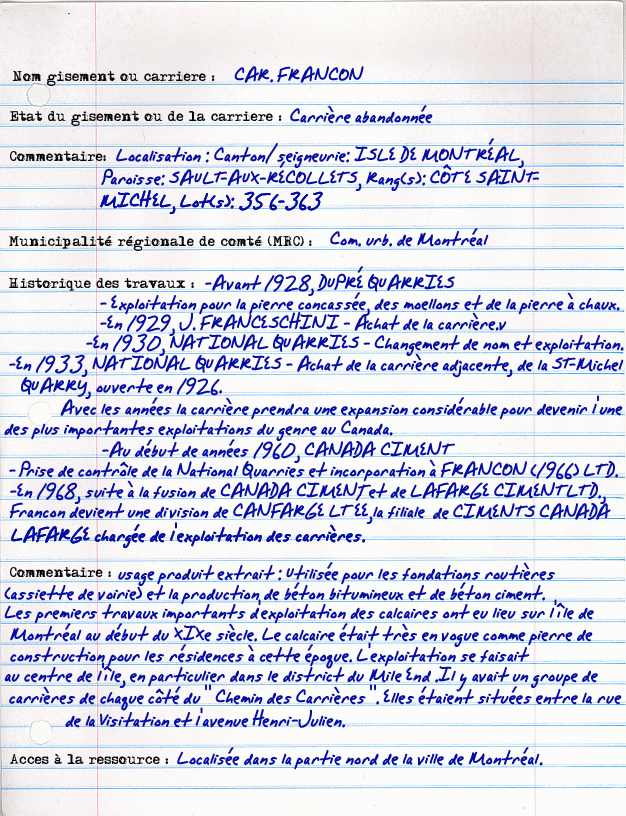 Nom gisement ou carriere : CAR. FRANCON
Etat du gisement ou de la carriere : Carrière abandonnée
Commentaire: Localisation : Canton/ seigneurie: ISLE DE MONTRÉAL,
Paroisse: SAULT-AUX-RÉCOLLETS, Rang(s): CÔTE SAINT-
MICHEL, Lot(s): 356-363
Municipalité régionale de comté (MRC) : Com. urb. de Montréal
Historique des travaux : -Avant 1928, DUPRÉ QUARRIES
- Exploitation pour la pierre concassée, des moellons et de la pierre à chaux.
-En 1929, J. FRANCESCHINI - Achat de la carrière.v
-En 1930, NATIONAL QUARRIES - Changement de nom et exploitation.
-En 1933, NATIONAL QUARRIES - Achat de la carrière adjacente, de la ST-Michel
QUARRY, ouverte en 1926.
Avec les années la carrière prendra une expansion considérable pour devenir l'une
des plus importantes exploitations du genre au Canada.
-Au début de années 1960, CANADA CIMENT
- Prise de contrôle de la National Quarries et incorporation à FRANCON (1966) LTD.
-En 1968, suite à la fusion de CANADA CIMENT et de LAFARGE CIMENT LTD.,
Francon devient une division de CANFARGE LTEE, la filiale de CIMENTS CANADA
LAFARGE chargée de l'exploitation des carrières.
Commentaire : usage produit extrait : Utilisée pour les fondations routières
(assiette de voirie) et la production de béton bitumineux et de béton ciment.
Les premiers travaux importants d'exploitation des calcaires ont eu lieu sur l'île de
Montréal au début du XIXe siècle. Le calcaire était très en vogue comme pierre de
construction pour les résidences à cette époque. L'exploitation se faisait
au centre de l'île, en particulier dans le district du Mile End. Il y avait un groupe de
carrières de chaque côté du " Chemin des Carrières ". Elles étaient situées entre la rue
de la Visitation et l'avenue Henri-Julien.
Acces à la ressource : Localisée dans la partie nord de la ville de Montréal.